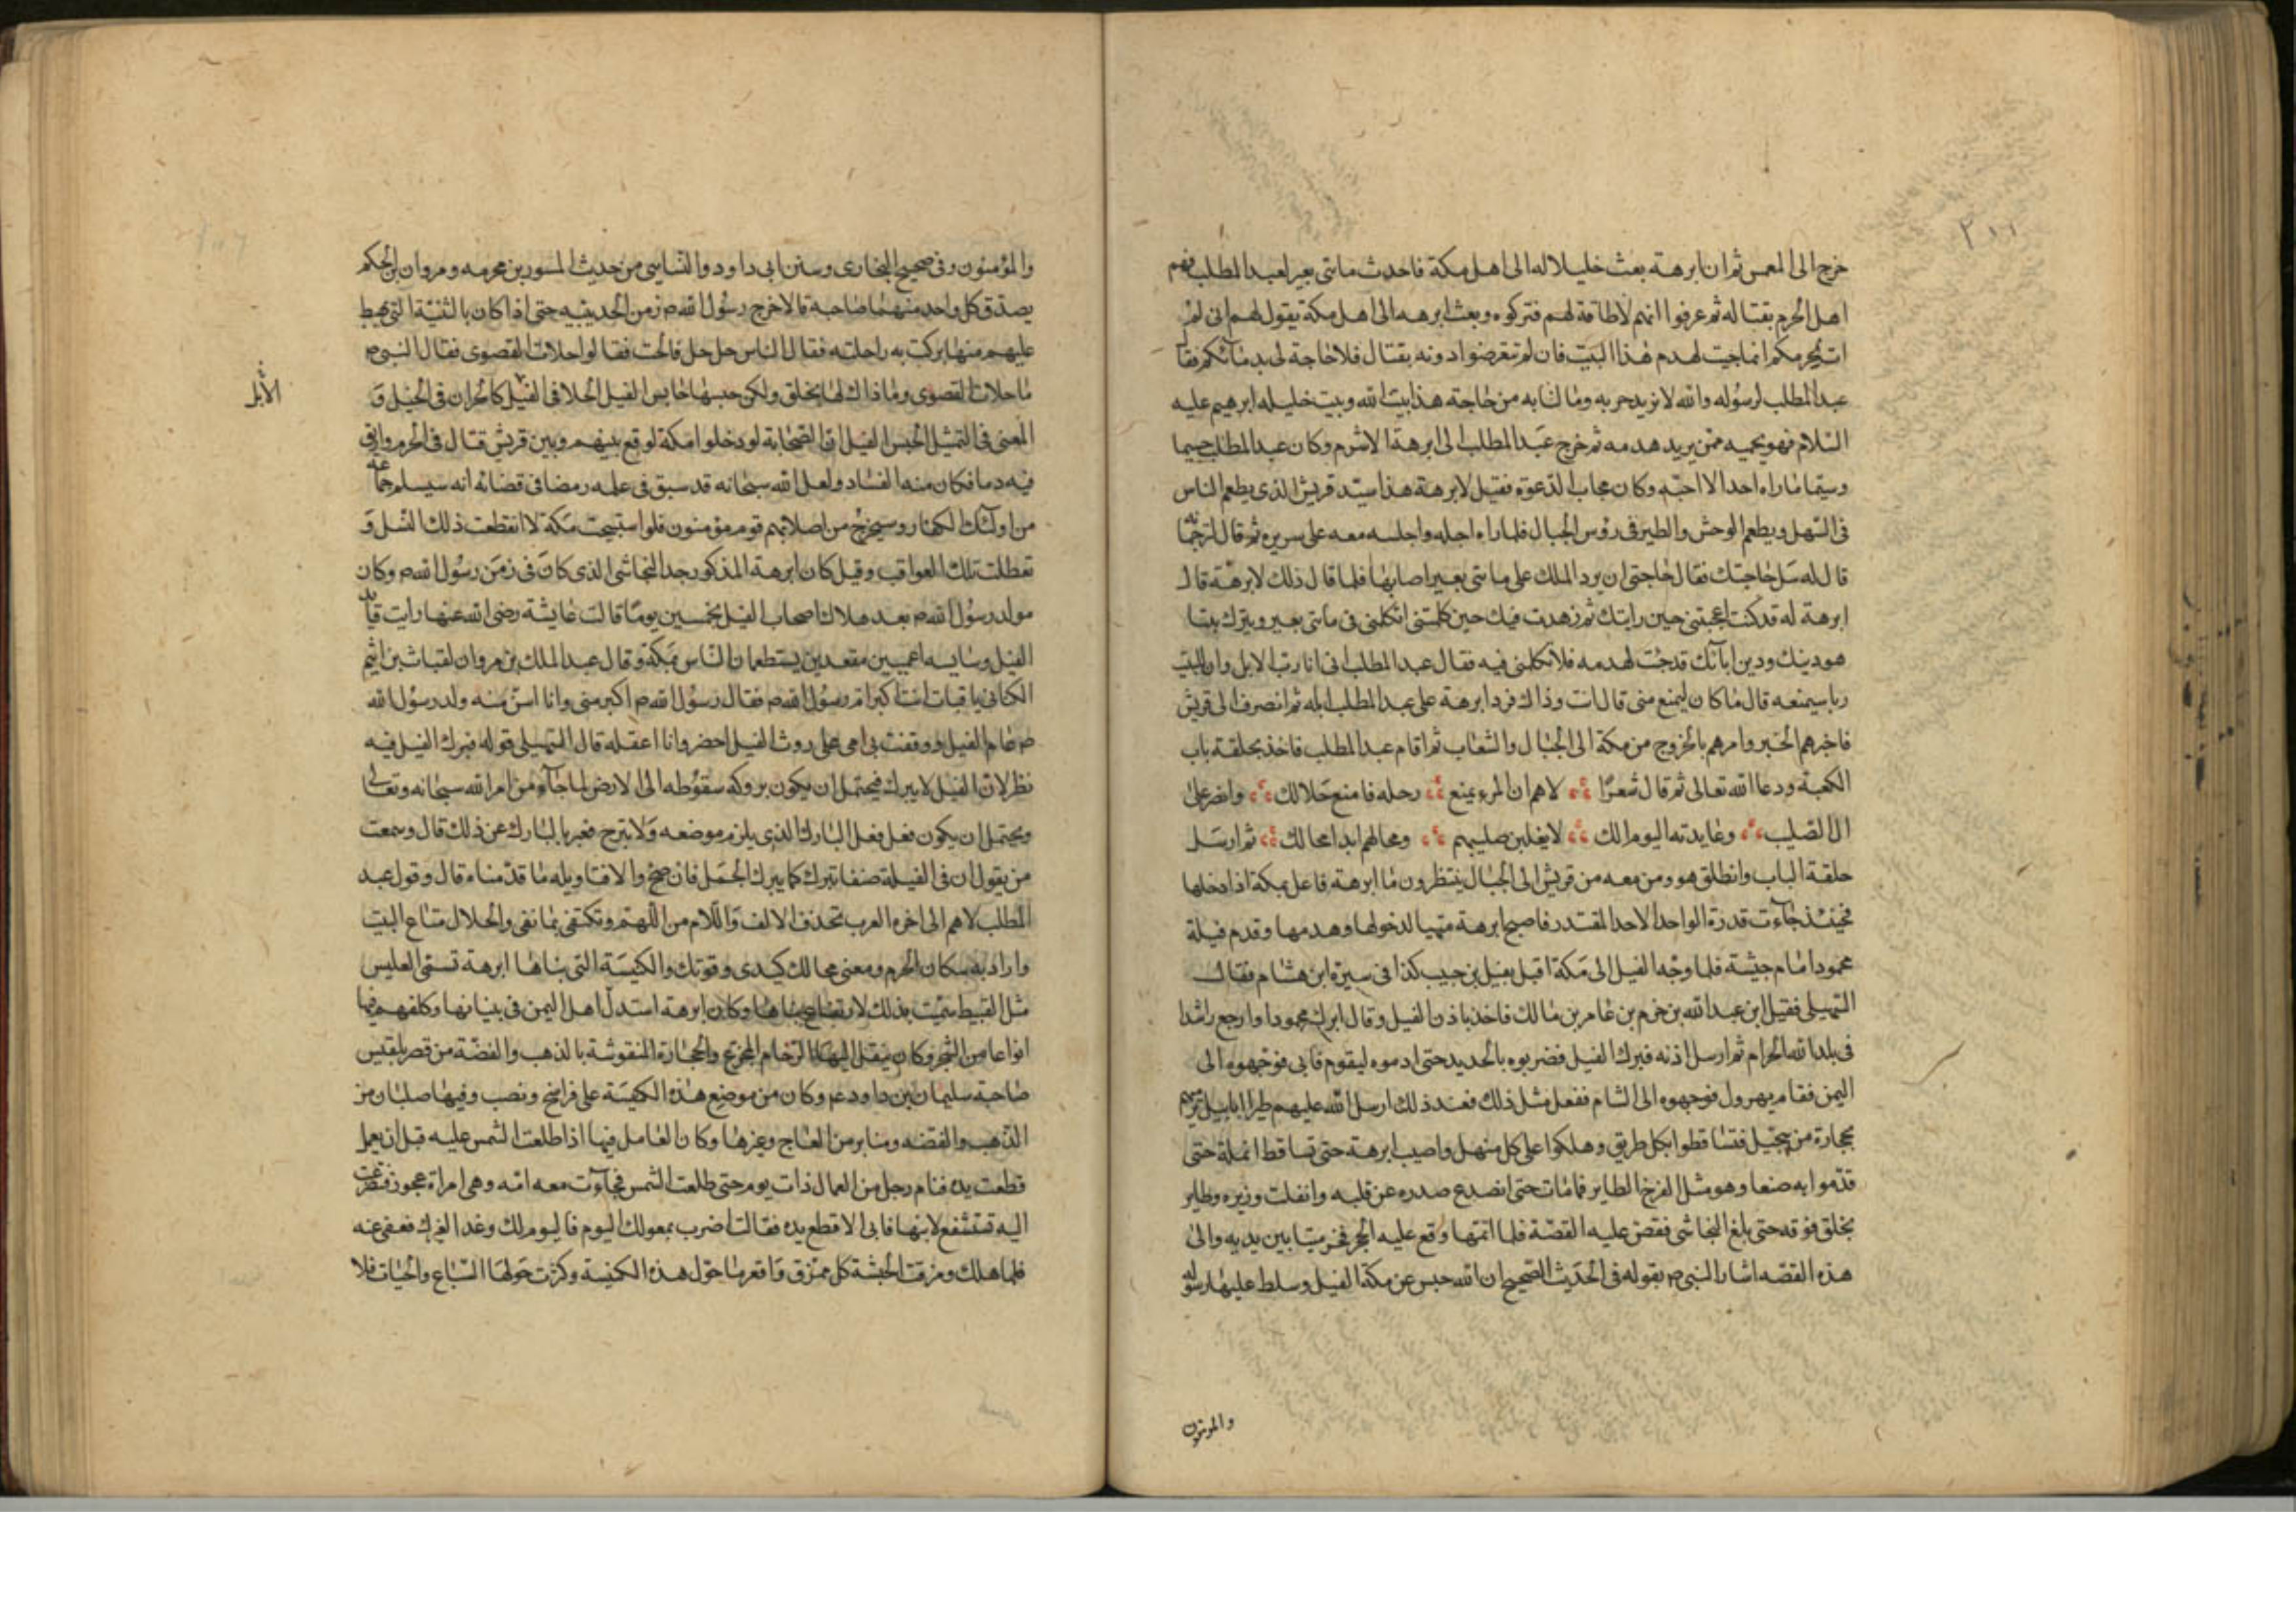 ٢١١
خرج الى المغمس ثم ان ابرهة بعث خليلا له الى اهل مكة فاخذت مايتى بعير لعبد المطلب فهم
اهل الحرم بقتاله ثم عرفوا انهم لا طاقة لهم فتركوه وبعث ابرهه الى اهل مكة يقول لهم انى لم
ات لحربكم انما جيت لهدم هذا البيت فان لم تتعرضوا دونه بقتال فلا حاجة لى بدمائكم فقا
عبد المطلب لرسوله والله لا نريد حربه وما لنا به من حاجة هذا بيت الله وبيت خليله ابرهيم عليه
السلام فهو يحميه ممن يريد هدمه ثم خرج عبد المطلب الى ابرهة الاشرم وكان عبد المطلب جسيما
وسيما ما راه احد الا احبه وكان مجاب الدعوة فقيل لابرهة هذا سيد قريش الذى يطعم الناس
فى السهل ويطعم الوحش والطير فى رؤس الجبال فلما راه اجله واجلسه معه على سريره ثم قال لترجمانه
قال له سل حاجتك فقال حاجتى ان يرد الملك على مايتى بعير اصابها فلما قال ذلك لابرهة قال
ابرهة له قد كنت اعجبتنى حين رايتك ثم زهدت فيك حين كلمتنى اتكلمنى فى مايتى بعير وتترك بيتا
هو دينك ودين ابائك قد جئت لهدمه فلا تكلمنى فيه فقال عبد المطلب انى انا رب الابل وان للبيت
ربا سيمنعه قال ما كان ليمنع منى قال انت وذاك فرد ابرهة على عبد المطلب ابله ثم انصرف الى قريش
فاخبرهم الخبر وامرهم بالخروج من مكة الى الجبال والشعاب ثم اقام عبد المطلب فاخذ بحلقة باب
الكعبة ودعا الله تعالى ثم قال شعرا لاهم ان المرء يمنع رحله فامنع حلالك وانصر على
ال الصليب وعابديه اليوم الك لا يغلبن صليبهم ومحالهم ابدا محالك ثم ارسل
حلقة الباب وانطلق هو ومن معه من قريش الى الجبال ينتظرون ما ابرهة فاعل بمكة اذا دخلها
فحينئذ جاءت قدرة الواحد الاحد المقتدر فاصبح ابرهة متهيا لدخولها وهدمها وقدم فيلة
محمودا امام جيشة فلما وجه الفيل الى مكة اقبل نفيل بن حبيب كذا فى سيرة ابن هشام فقال
السهيلى فقيل ابن عبد الله بن خرم بن عامر بن مالك فاخذ باذن الفيل وقال ابرك محمودا وارجع راشدا
فى بلد الله الحرام ثم ارسل اذنه فبرك الفيل فضربوه بالحديد حتى ادموه ليقوم فابى فوجهوه الى
اليمن فقام يهرول فوجهوه الى الشام ففعل مثل ذلك فعند ذلك ارسل الله عليهم طيرا ابابيل ترميهم
بحجارة من سجيل فتساقطوا بكل طريق وهلكوا على كل منهل واصيب ابرهة حتى تساقط انملة حتى
قدموا به صنعا وهو مثل الفرخ الطاير فما مات حتى انصدع صدره عن قلبه وانفلت وزيره وطاير
يحلق فوقه حتى بلغ النجاشى فقص عليه القصة فلما اتمها وقع عليه الحجر فخر ميتا بين يديه والى
هذه القصه اشار النبى م بقوله فى الحديث الصحيح ان الله حبس عن مكة الفيل وسلط عليها رسوله
والمومنون
والمؤمنون وفى صحيح البخارى وسنن ابى داود والنسايى من حديث المسور بن مخرمه ومروان بن الحكم
يصدق كل واحد منهما صاحبه قالا خرج رسول الله م زمن الحديبيه حتى اذا كان بالثنية التى يهبط
عليهم منها بركت به راحلته فقال الناس حل حل فالحت فقالوا خلات القصوى فقال النبى م
ما خلات القصوى وما ذاك لها بخلق ولكن حبسها حابس الفيل الخلا فى الفيل كالحران فى الخيل و
الابل
المعنى فى التمثيل الحبس الفيل ان الصحابة لو دخلوا مكة لوقع بينهم وبين قريش قتال فى الحرم واريق
فيه دما فكان منه الفساد ولعل الله سبحانه قد سبق فى علمه رمضا فى قضائه انه سيسلم جماعة
من اولئك الكفار وسيخرج من اصلابهم قوم مؤمنون فلو استبيحت مكة لا انقطعت ذلك النسل و
تعطلت تلك العواقب وقيل كان ابرهة المذكور جد النجاشى الذى كان فى زمن رسول الله م وكان
مولد رسول الله م بعد هلاك اصحاب الفيل بخمسين يوما قالت عايشة رضى الله عنها رايت قايد
الفيل وسايسه اعميين مقعدين يستطعمان الناس بمكة وقال عبد الملك بن مروان لقباث بن اشيم
الكنانى يا قباث انت اكبر ام رسول الله م فقال رسول الله م اكبر منى وانا اسن منه ولد رسول الله
م عام الفيل ووقفت بى امى على روث الفيل اخضر وانا اعقله قال السهيلى قوله فبرك الفيل فيه
نظر لان الفيل لا يبرك فيحتمل ان يكون بروكه سقوطه الى الارض لما جاءه من امر الله سبحانه وتعالى
ويحتمل ان يكون فعل فعل البارك الذى يلزم موضعه ولا يبرح فعبر بالبارك عن ذلك قال وسمعت
من يقول ان فى الفيلة صنفا تبرك كما يبرك الجمل فان صح والا فتاويله ما قدمناه قال وقول عبد
المطلب لاهم الى اخره العرب تحذف الالف واللام من اللهم وتكتفى بما نفى والحلال متاع البيت
واراد به سكان الحرم ومعنى محالك كيدى وقوتك والكنيسة التى بناها ابرهة تسمى العليس
مثل القبيط سميت بذلك لارتفاع بناها وكان ابرهة استدل اهل اليمن فى بنيانها وكلفهم فيها
انواعا من الشجر وكان ينقل اليها الرخام المجزع والحجارة المنقوشة بالذهب والفضة من قصر بلقيس
صاحبة سليمان بن داود عم وكان من موضع هذه الكنيسة على فراسخ ونصب وفيها صلبان من
الذهب والفضه ومنابر من العاج وغيرها وكان العامل فيها اذا طلعت الشمس عليه قبل ان يعمل
قطعت يده فنام رجل من العمال ذات يوم حتى طلعت الشمس فجاءت معه امه وهى امراة عجوز فتضرعت
اليه تستشفع لابنها فابى الا قطع يده فقالت اضرب بمعولك اليوم فاليوم لك وغدا لغيرك فعفى عنه
فلما هلك ومزقت الحبشة كل ممزق واقفر ما حول هذه الكنيسة وكثرت حولها السباع والحيات فلا